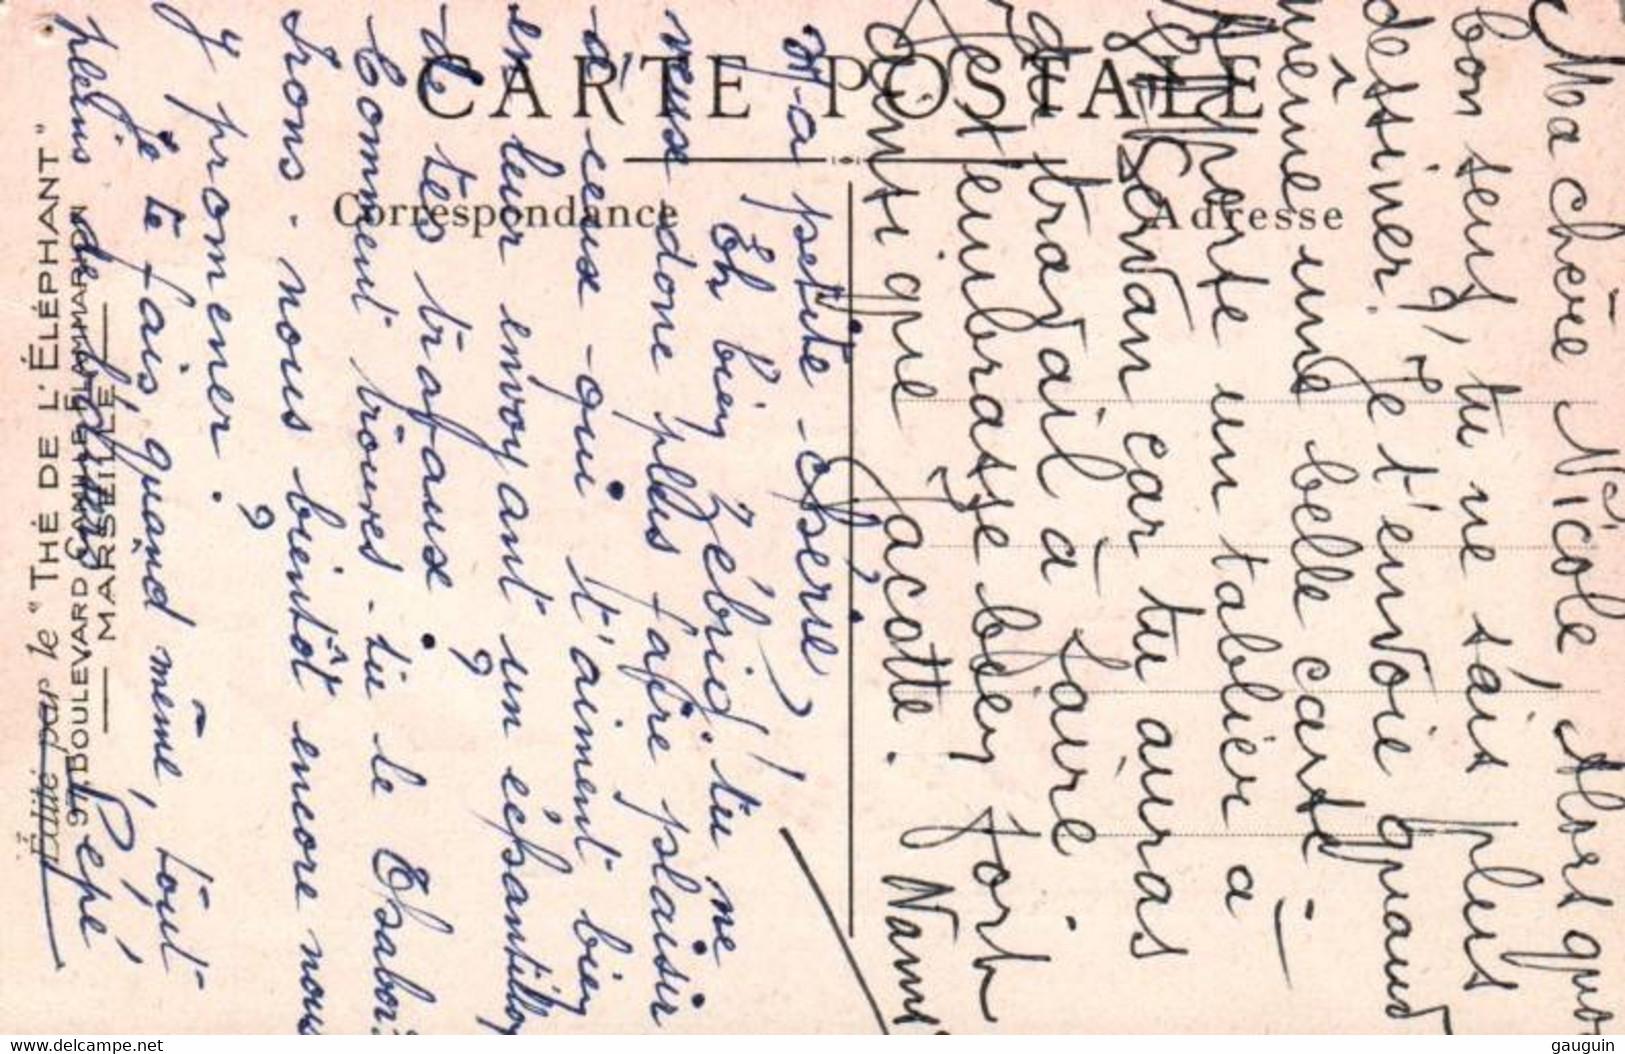 CARTE POSTALE
Correspondance
Adresse
Édité par le "THÉ DE L'ÉLÉPHANT"
BOULEVARD CAMILLE FLAMMARION
MARSEILLE
Ma chère Nicole, Alors quoi
bon sens, tu ne sais plus
dessiner? Je t'envoie quand
même une belle carte -
apporte un tablier à
Servan car tu auras
du travail à faire.
Je t'embrasse bien fort
ainsi que Jacotte. Nami
Ma petite chérie,
Eh bien Zébrid! tu ne
veux donc plus faire plaisir
à ceux qui t'aiment bien
en leur envoyant un échantillon
de tes travaux?
Comment trouves-tu le Thabor?
Irons-nous bientôt encore nous
y promener?
Je te fais, quand même, tout
pleins de
Pépé
gauguin
www.delcampe.net